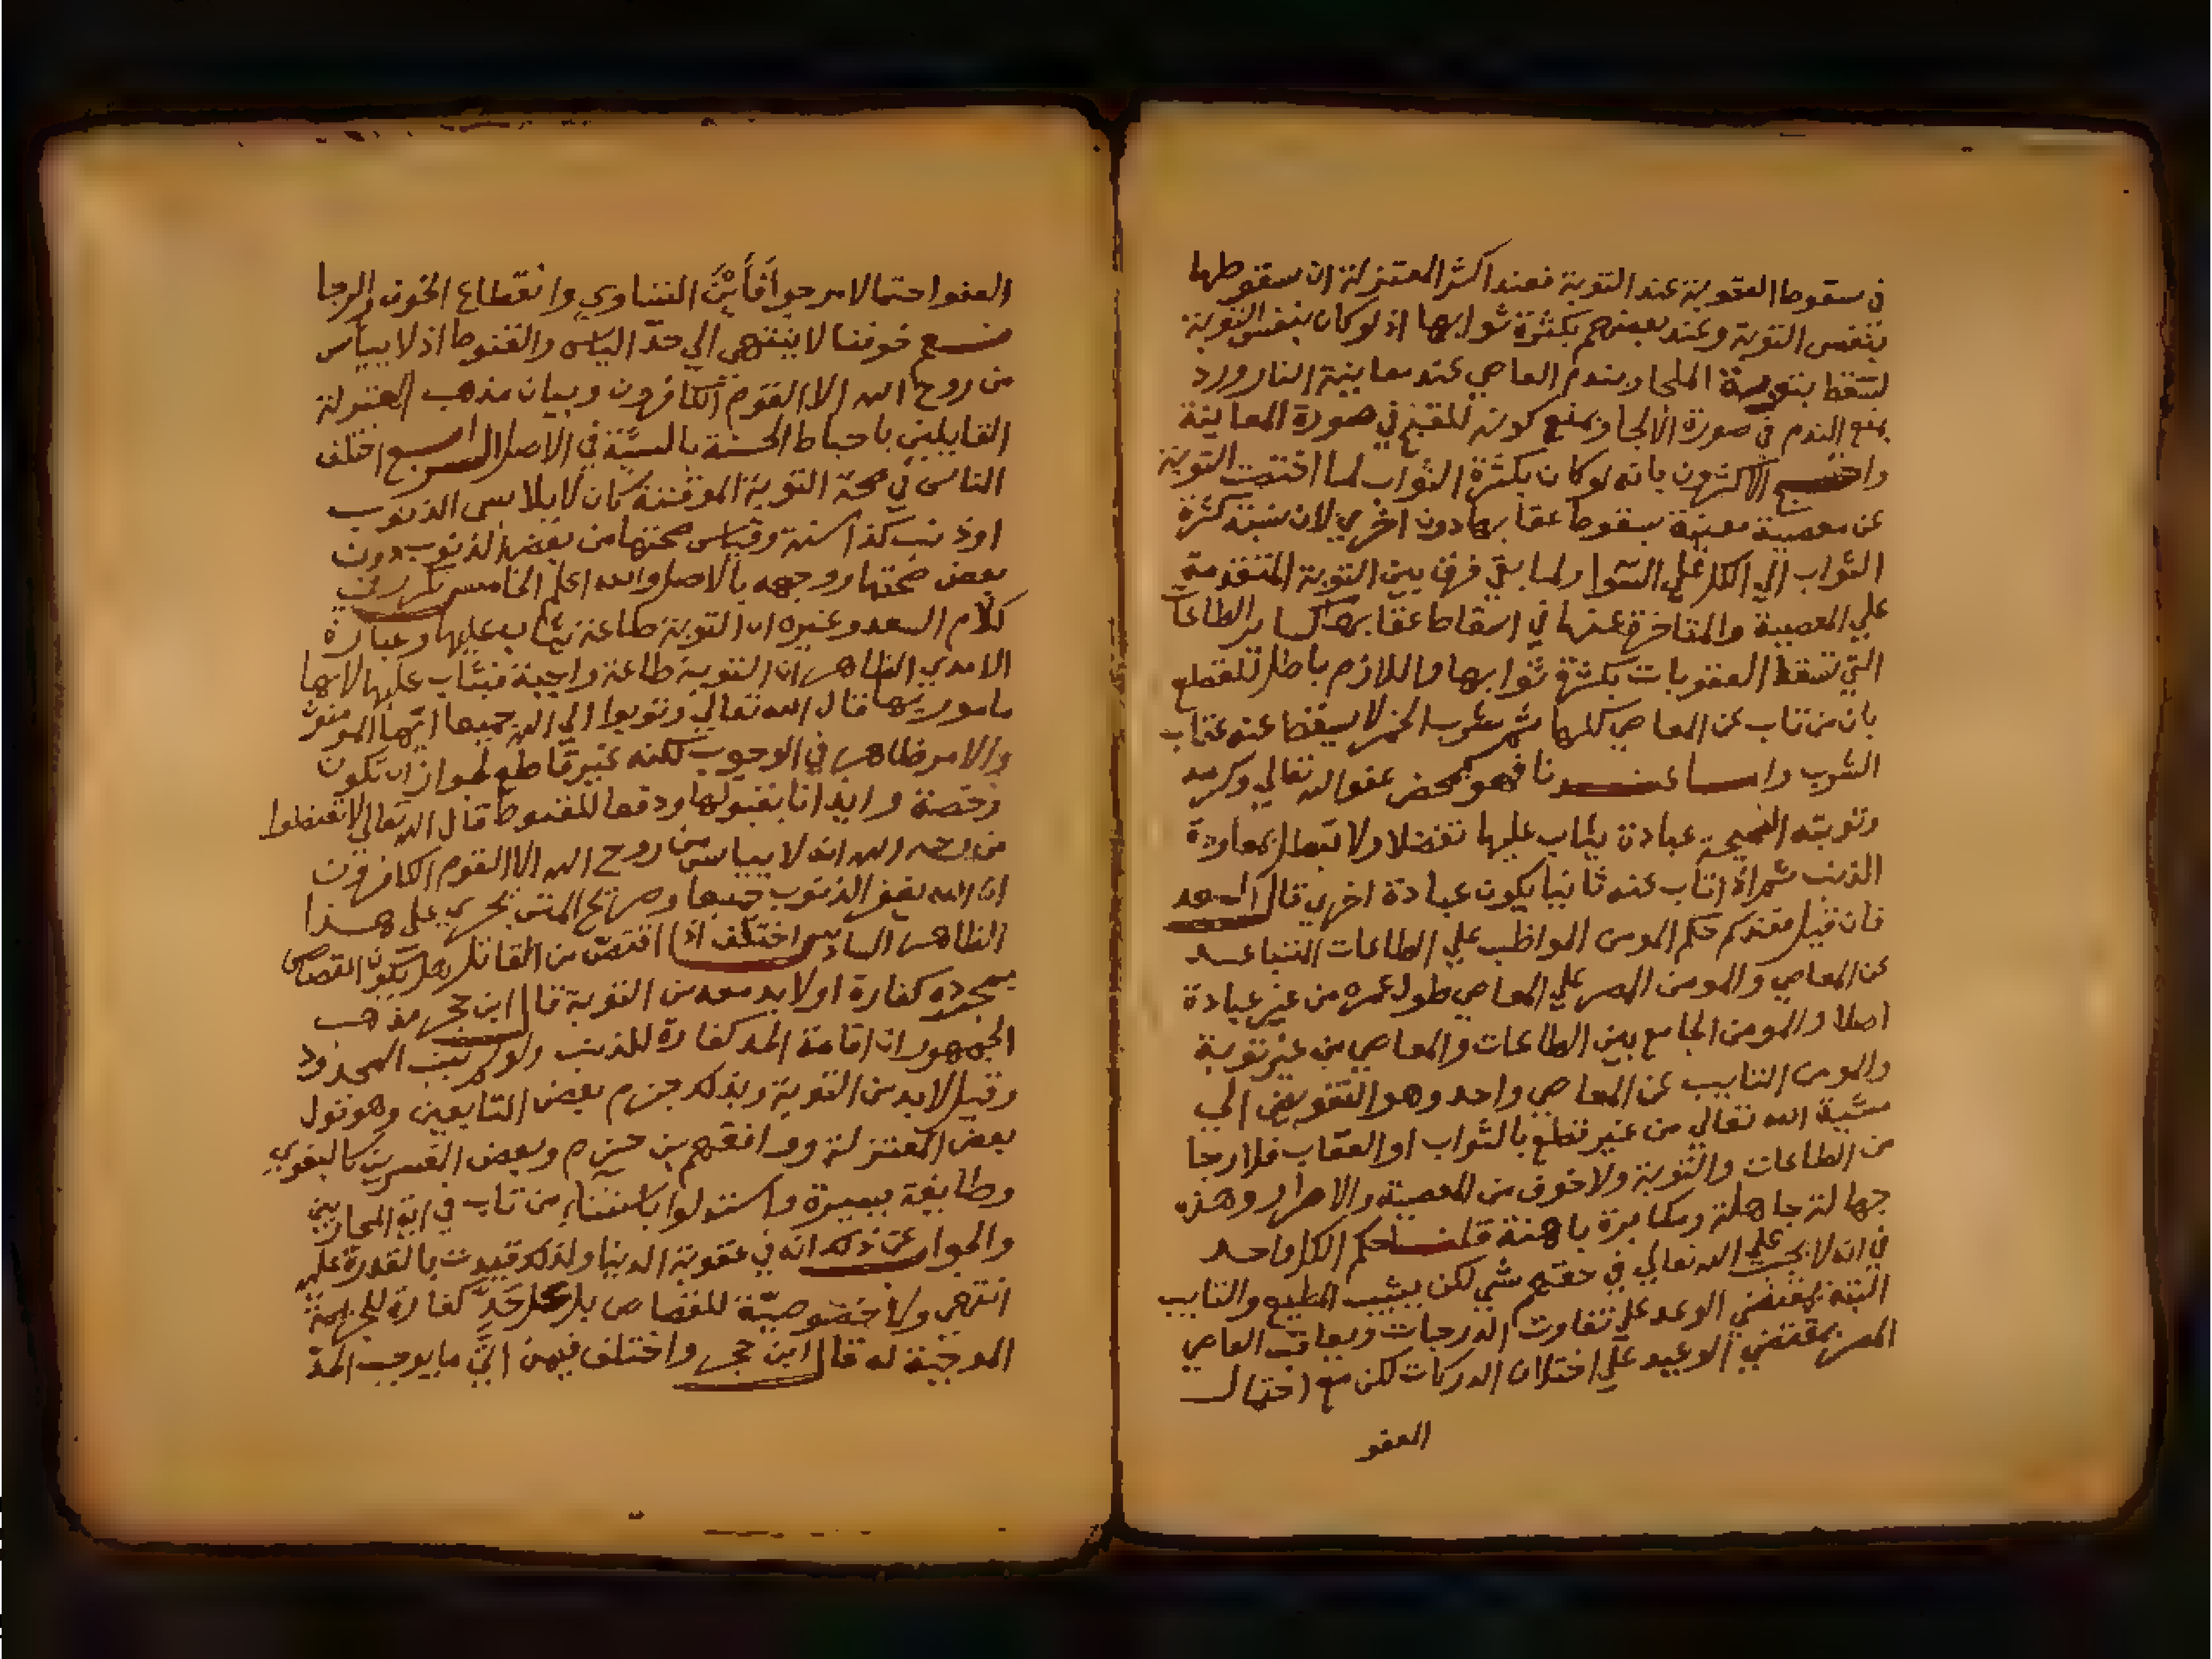 في سقوط العقوبة عند التوبة فعند اكثر المعتزلة ان سقوطها
بنفس التوبة وعند بعضهم بكثرة ثوابها اذ لو كان بنفس التوبة
لسقط بتوبة الملجا وبندم العاصي عند معاينة النار ورد
بمنع الندم في صورة الالجا وبمنع كونه للقبح في صورة المعاينة
واحتج الاكثرون بانه لو كان بكثرة الثواب لما اختصت التوبة
عن معصية معينة بسقوط عقابها دون اخري لان نسبة كثرة
الثواب الي الكل علي السوا ولما بقي فرق بين التوبة المتقدمة
علي المعصية والمتاخرة عنها في اسقاط عقابها كساير الطاعات
التي تسقط العقوبات بكثرة ثوابها واللازم باطل للقطع
بان من تاب عن المعاصي كلها ثم شرب الخمر لا يسقط عنه عقاب
الشرب واما عندنا فهو محض عفو الله تعالي وكرمه
وتوبته الصحيحة عبادة يثاب عليها تفضلا ولا تبطل بمعاودة
الذنب ثم اذا تاب عنه ثانيا يكون عبادة اخري قال السعد
فان قيل فعندكم حكم المومن المواظب علي الطاعات المتباعد
عن المعاصي والمومن المصر علي المعاصي طول عمره من غير عبادة
اصلا والمومن الجامع بين الطاعات والمعاصي من غير توبة
والمومن التايب عن المعاصي واحد وهو التفويض الي
مشية الله تعالي من غير قطع بالثواب او العقاب فلا رجا
من الطاعات والتوبة ولا خوف من المعصية والاصرار وهذه
جهالة جاهلة ومكابرة باهتة قلنا حكم الكل واحد
في انه لا يجب علي الله تعالي في حقهم شي لكن يثيب المطيع والتايب
البتة بمقتضي الوعد علي تفاوت الدرجات ويعاقب العاصي
المصر بمقتضي الوعيد علي اختلاف الدركات لكن مع احتمال
العفو
العفو احتمالا مرجوا فأين التساوي وانقطاع الخوف والرجا
مع خوفنا لا ينتهي الي حد الياس والقنوط اذ لا يياس
من روح الله الا القوم الكافرون وبيان مذهب المعتزلة
القايلين باحباط الحسنة بالسية في الاصل الرابع اختلف
الناس في صحة التوبة الموقتة كان لا يلابس الذنوب
او ذنب كذا سنة وقياس صحتها من بعض الذنوب دون
بعض صحتها ووجهه بالاصل والله اعلم الخامس تكرر في
كلام السعد وغيره ان التوبة طاعة يثاب عليها وعبارة
الامدي الظاهر ان التوبة طاعة واجبة فيثاب عليها لانها
مامور بها قال الله تعالي وتوبوا الي الله جميعا ايها المومنون
والامر ظاهر في الوجوب لكنه غير قاطع لجواز ان تكون
رخصة وايذانا بقبولها ودفعا للقنوط قال الله تعالي لا تقنطوا
من رحمة الله انه لا يياس من روح الله الا القوم الكافرون
ان الله يغفر الذنوب جميعا وصريح المتن يجري علي هذا
الظاهر السادس اختلف اذا اقتص من القاتل هل يكون القصاص
بمجرده كفارة او لا بد معه من التوبة قال ابن حجر مذهب
الجمهور ان اقامة الحد كفارة للذنب ولو لم يتب المحدود
وقيل لا بد من التوبة وبذلك جزم بعض التابعين وهو قول
بعض المعتزلة ووافقهم بن حزم وبعض المفسرين كالبغوي
وطايفة يسيرة واستدلوا باستثناء من تاب في اية المحاربين
والجواب عن ذلك انه في عقوبة الدنيا ولذلك قيدت بالقدرة عليه
انتهي ولا خصوصية للقصاص بل كل حد كفارة للجريمة
الموجبة له قال ابن حجر واختلف فيمن اتي ما يوجب الحد